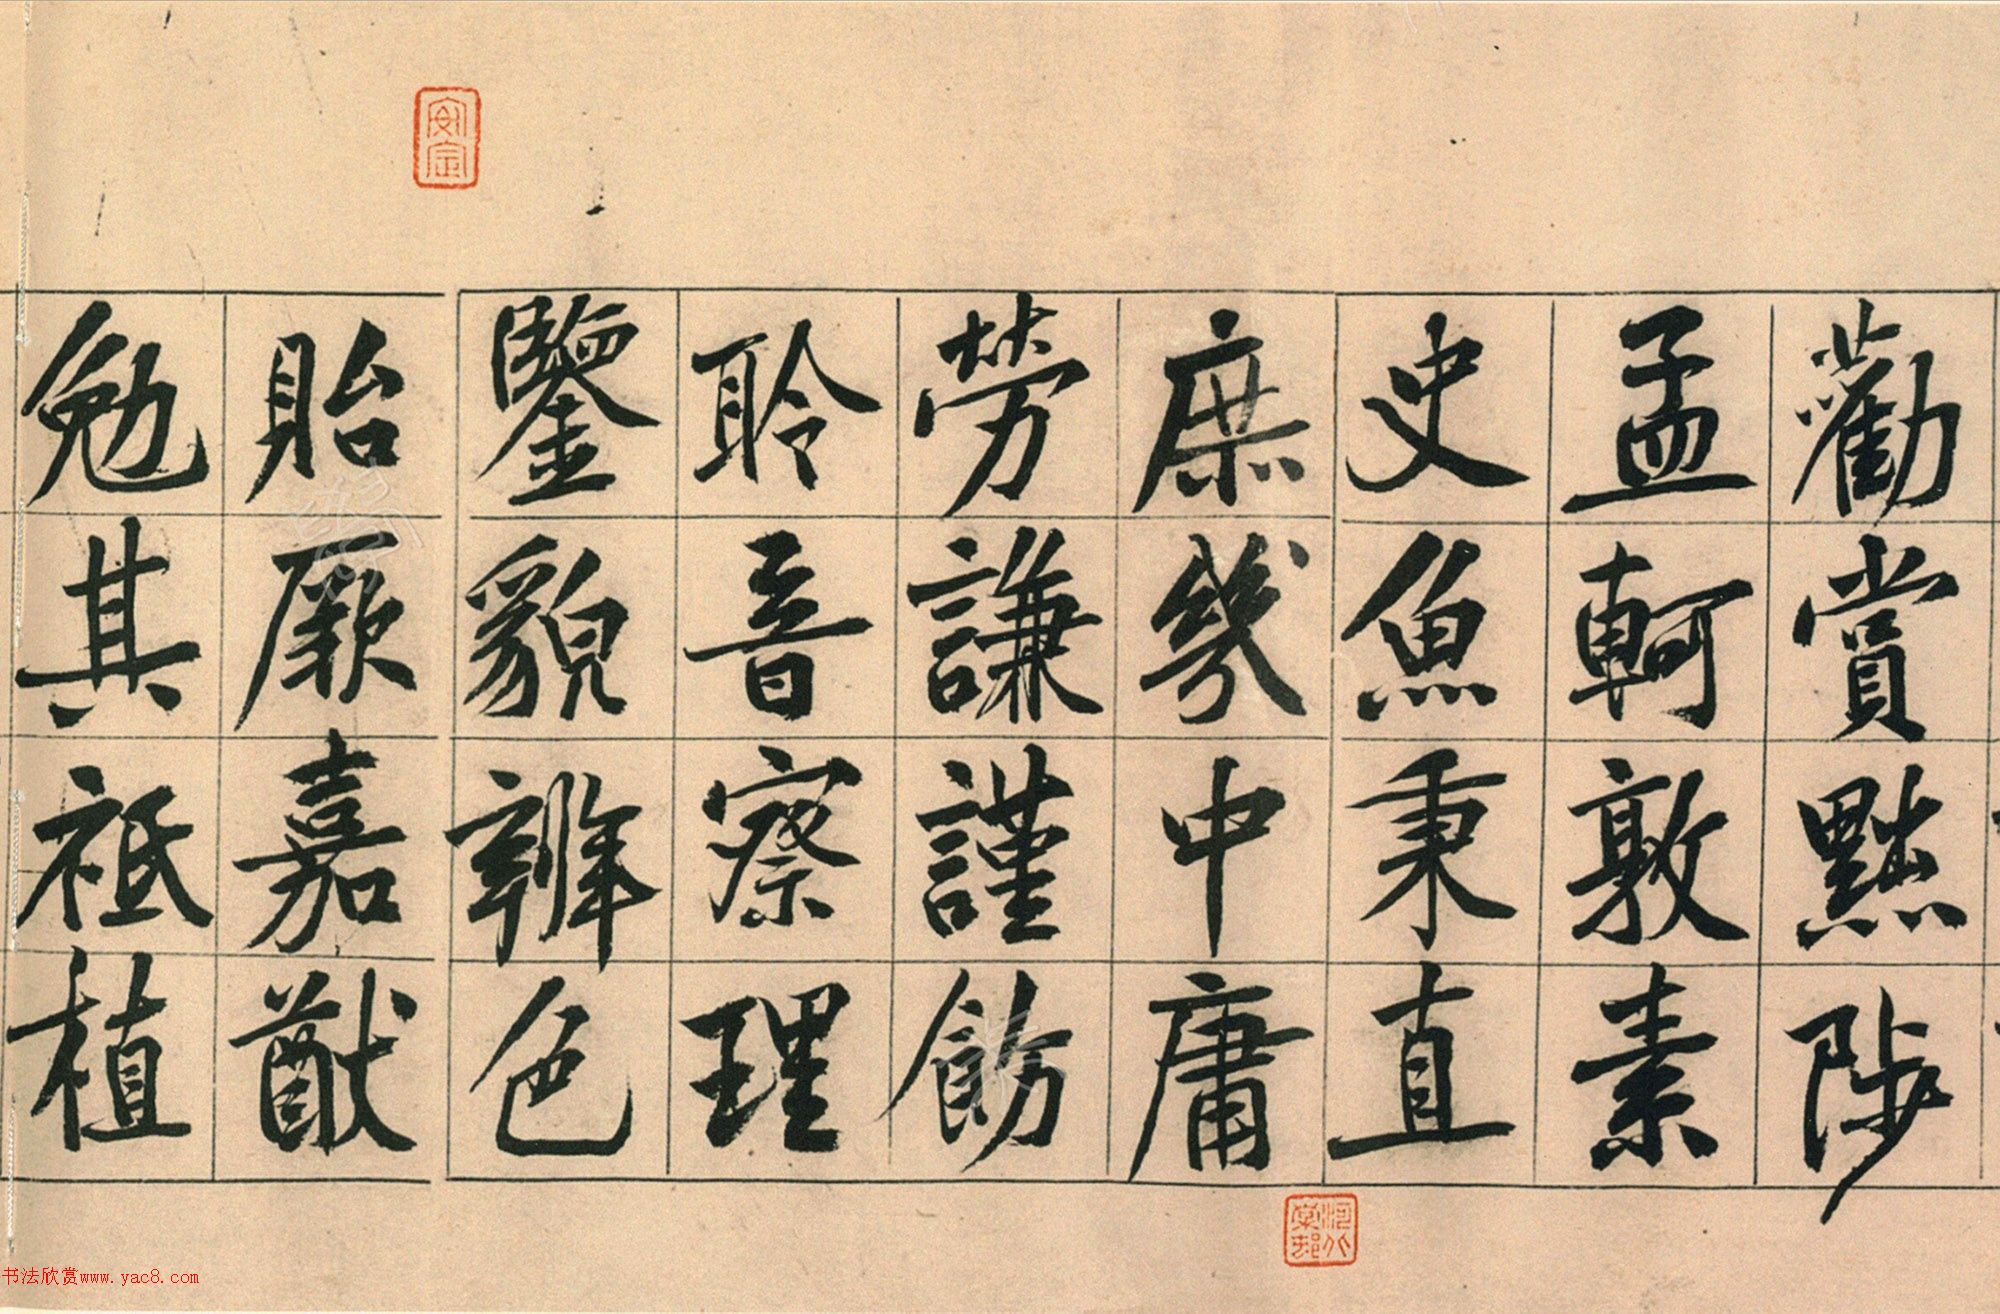 勸賞黜陟
孟軻敦素
史魚秉直
庶幾中庸
勞謙謹飭
聆音察理
鑒貌辨色
貽厥嘉猷
勉其祗植
安定
书法欣赏www.yac8.com